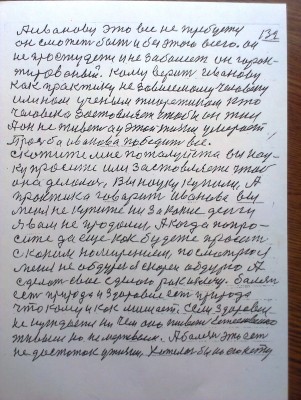 132
А иванову это все не требуту
он сможет быть и без этого всего. он
не простудетца не заболеет он гаран-
тированай. Кому верит иванову
как практику независемому человеку
или ном ученым теоретиком кто
человека заставляет чтобы он жил
А он не живет а у этой жизни умерает.
Прозба иванова победит все.
скажите мне пожалуйста вы нау-
ку просите или заставляете чтоб
она делала, Вы науку купили, А
практика говарит иванова вы
меня не купите ни за какие деньги
я вам не продамся А когда попро-
сите да еще как будете просит
с каким намереннием, посмотрю я
меня не обдуриш скорей обдурю. А
сделать все сделаю ракитову. болеет
сет природа и здаровие ест природа
что кому и как мешает. Если здоровеи
не нуждаетца ни чем оно живет естественно
живым но не мертвым. А болезнь это ест
не достаток у жизни. Хотелос бы по етому